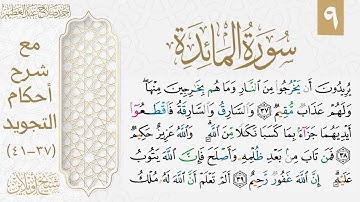 ٩
سورة المائدة
مع
شرح
أحكام
التجويد
(٣٧-٤١)
يُرِيدُونَ أَن يَخْرُجُوا۟ مِنَ ٱلنَّارِ وَمَا هُم بِخَٰرِجِينَ مِنْهَا ۖ
وَلَهُمْ عَذَابٌ مُّقِيمٌ ٣٧ وَٱلسَّارِقُ وَٱلسَّارِقَةُ فَٱقْطَعُوٓا۟
أَيْدِيَهُمَا جَزَآءًۢ بِمَا كَسَبَا نَكَٰلًا مِّنَ ٱللَّهِ ۗ وَٱللَّهُ عَزِيزٌ حَكِيمٌ ٣٨
فَمَن تَابَ مِنۢ بَعْدِ ظُلْمِهِۦ وَأَصْلَحَ فَإِنَّ ٱللَّهَ يَتُوبُ
عَلَيْهِ ۗ إِنَّ ٱللَّهَ غَفُورٌ رَّحِيمٌ ٣٩ أَلَمْ تَعْلَمْ أَنَّ ٱللَّهَ لَهُۥ مُلْكُ